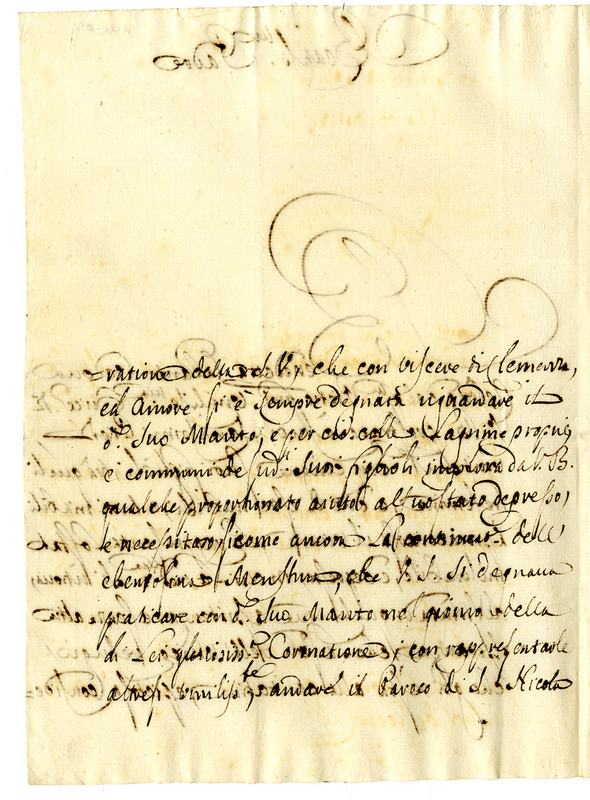 =ratione della che con viscere di Clemenza,
ed Amore si è sempre degnata riguardare il
d.º suo Marito, e per ciò colle Lagrime proprie,
e communi de sud.ti suoi figlioli implora da V. B.
qualche proporzionato aiuto al suo stato depresso,
e necessitato, sicome ancora La continuat.e delle
elemosina Menstrua, che V. S. si degnava
praticare con d.º suo Marito nel giorno della
di Lei Coronatione; con rappresentarle
altresi umiliss.te, andare il Paroco di S. Nicola